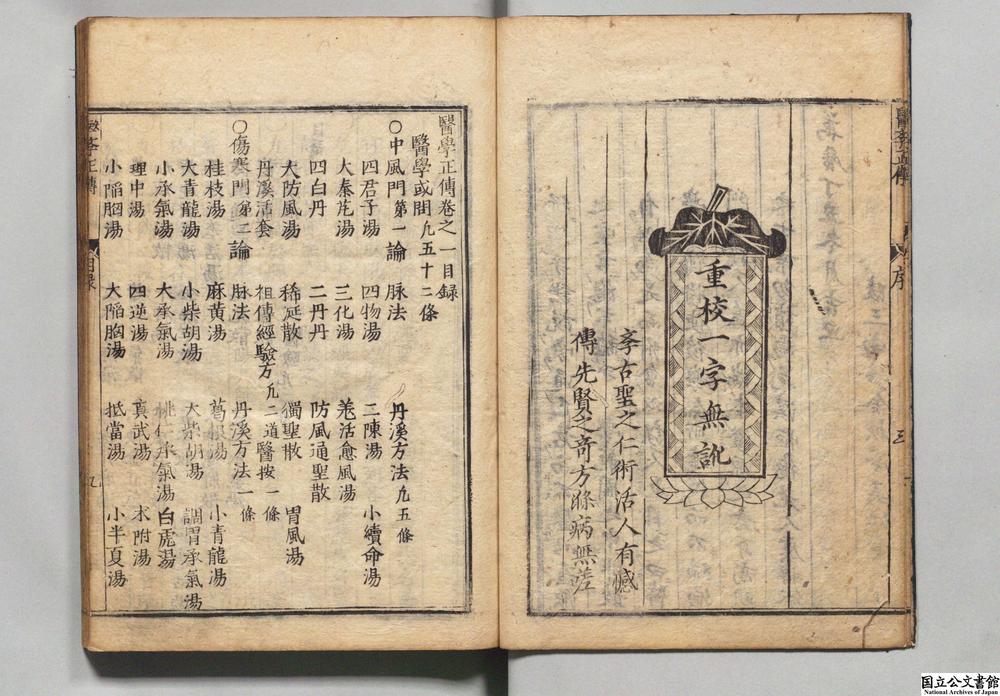 重校一字無訛
孝古聖之仁術活人有憾
傳先賢之奇方除病無嗟
序
醫學正傳卷之一目録
醫學或問凡五十二條
○中風門第一論 脉法 丹溪方法凡五條
四君子湯 四物湯 二陳湯 小續命湯
大秦艽湯 三化湯 羗活愈風湯
四白丹 二丹丹 防風通聖散
大防風湯 稀涎散 獨聖散 胃風湯
丹溪活套 祖傳經驗方凡二道 醫按一條
○傷寒門第二論 脉法 丹溪方法一條
桂枝湯 麻黄湯 葛根湯 小青龍湯
大青龍湯 小柴胡湯 大柴胡湯 調胃承氣湯
小承氣湯 大承氣湯 桃仁承氣湯 白虎湯
理中湯 四逆湯 真武湯 术附湯
小陷胸湯 大陷胸湯 抵當湯 小半夏湯
目録
国立公文書館
National Archives of Japan